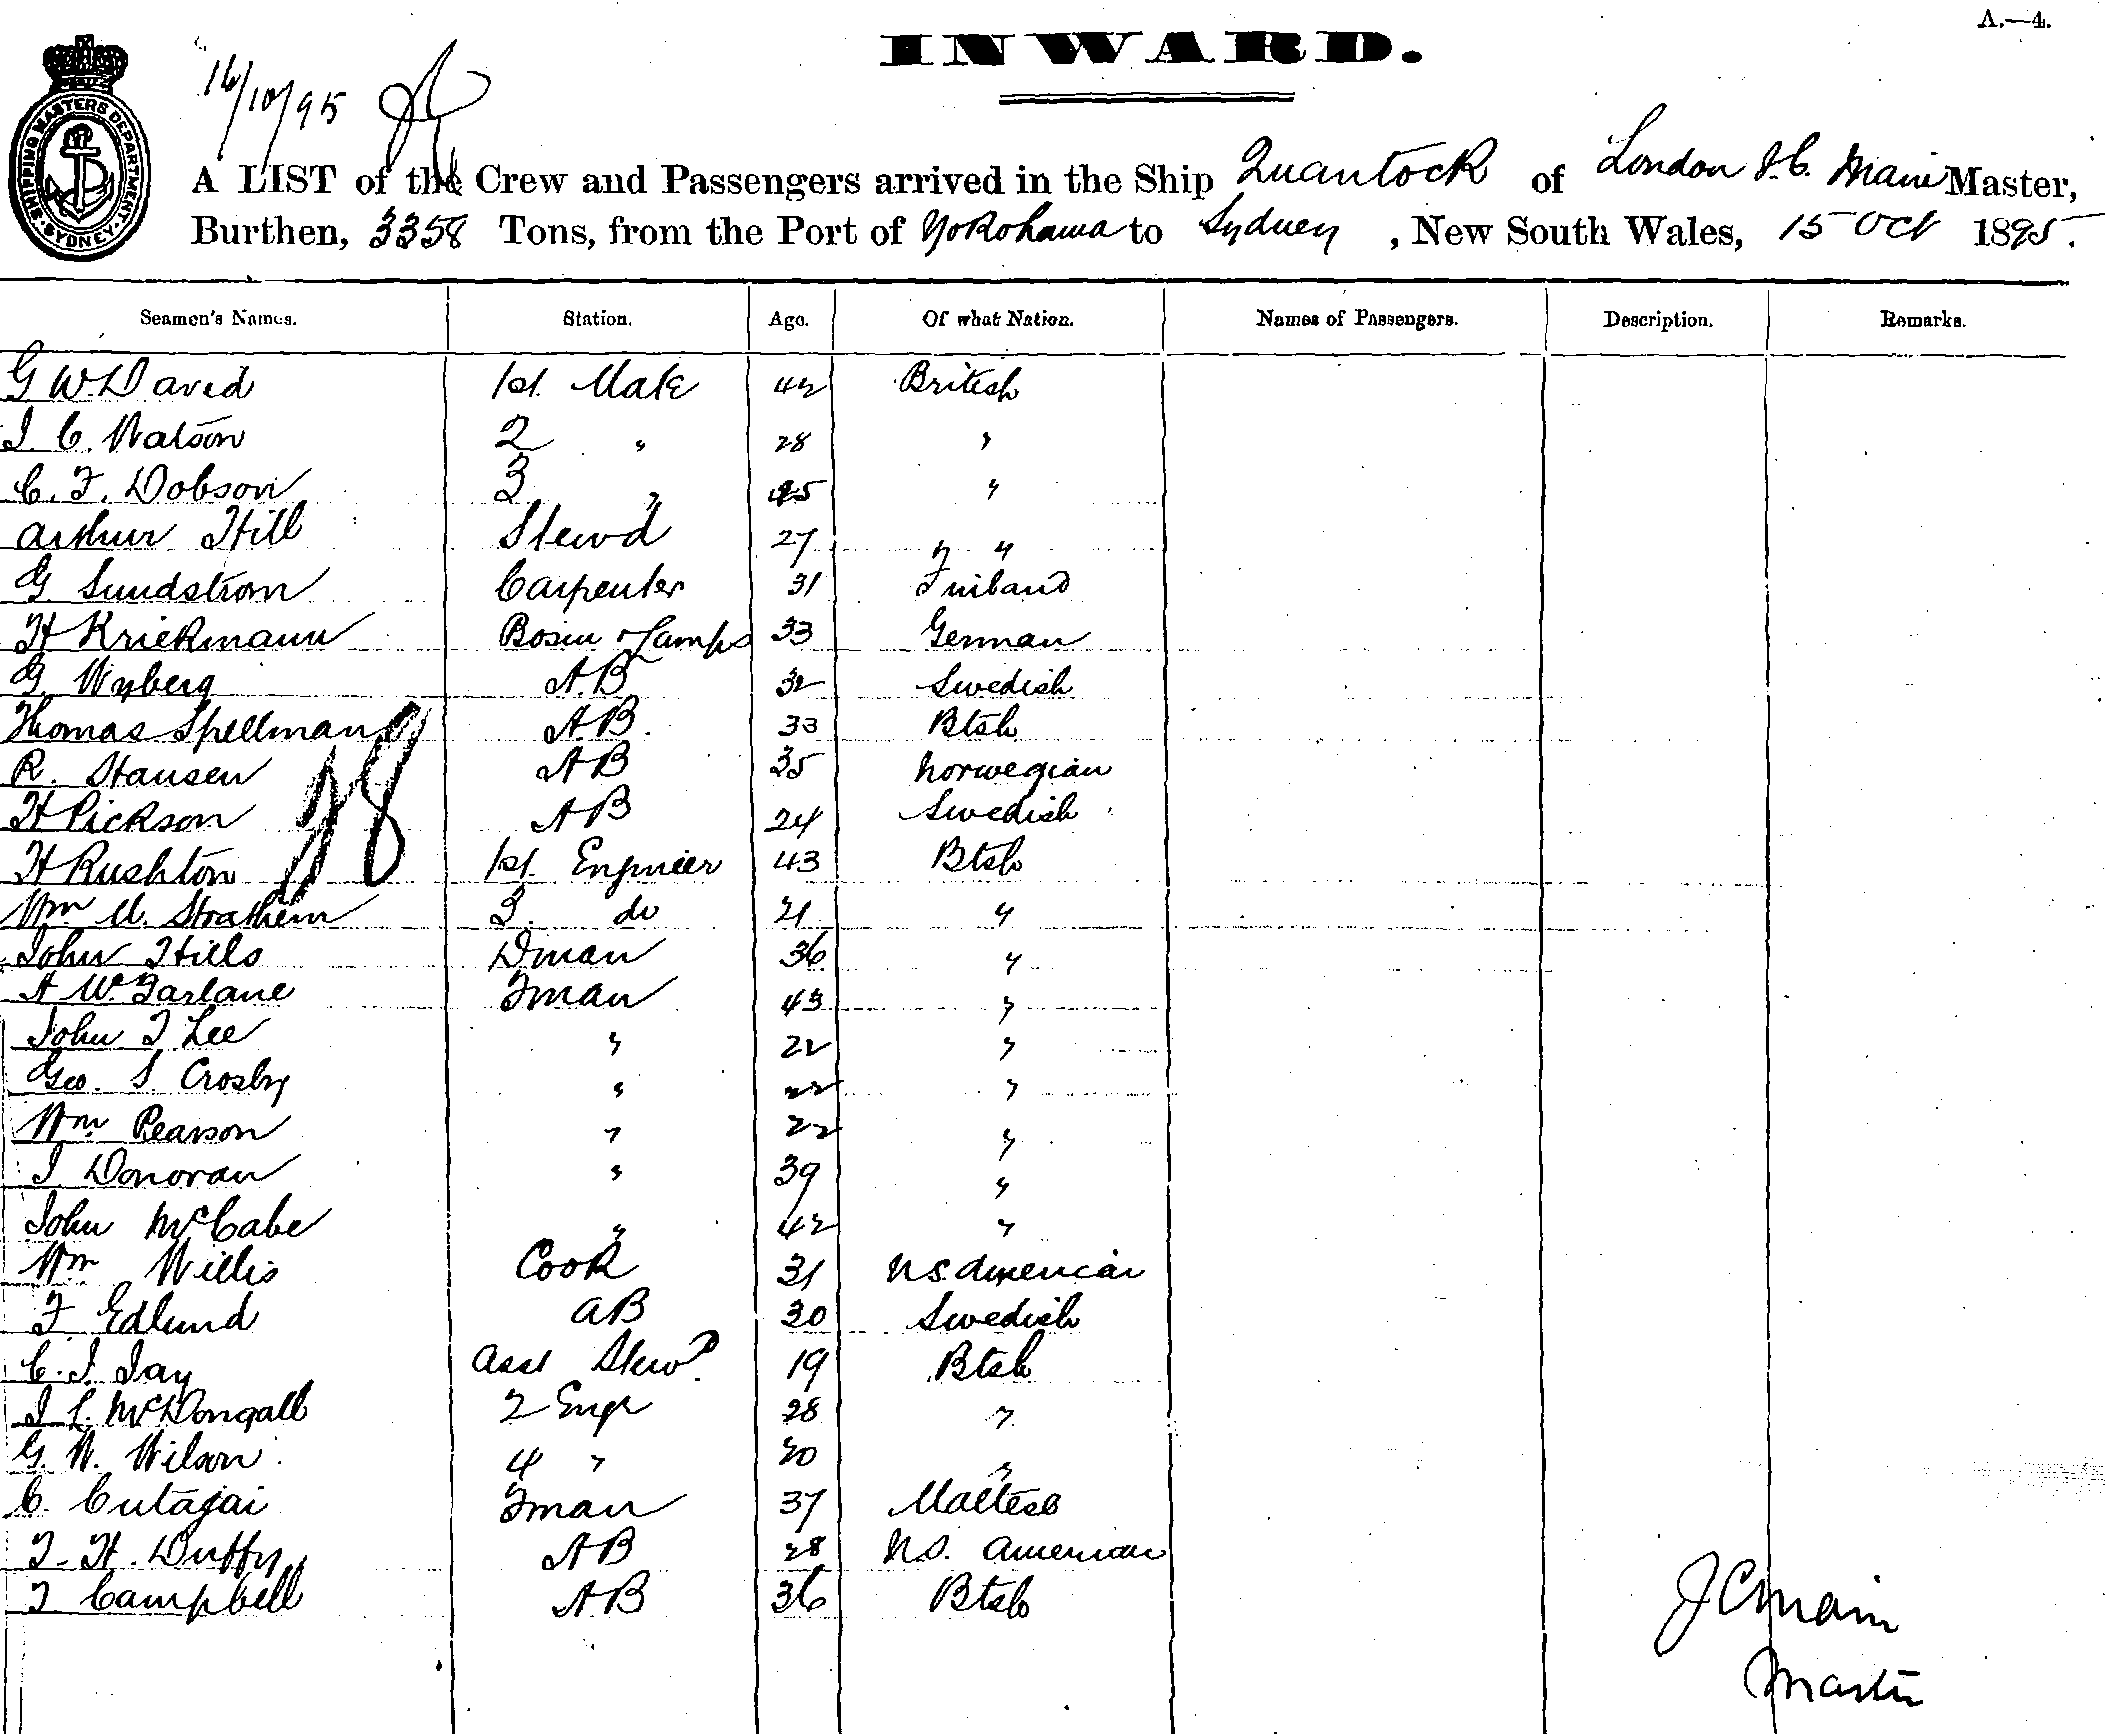 A.—4.
INWARD.
16/10/95
SHIPPING MASTERS DEPARTMENT SYDNEY
A LIST of the Crew and Passengers arrived in the Ship Quantock of London J.C. Main Master,
Burthen, 3358 Tons, from the Port of Yokohama to Sydney, New South Wales, 15 Oct 1895.
Seamen's Names. Station. Age. Of what Nation. Names of Passengers. Description. Remarks.
G W. David 1st. Mate 42 British
J. C. Watson 2 " 28 "
C. F. Dobson 3 " "
Arthur Hill Stewd 27 " "
G Sundstrom Carpenter 31 Finland
H Kriekmann Bosun & Lamps 33 German
G Wyberg A.B 32 Swedish
Thomas Spellman A.B. 33 Btsh
R. Hansen AB 35 Norwegian
H Pickson AB 24 Swedish
H Rushton 1st. Engineer 43 Btsh
Wm M. Strathern 3. do 21 "
John Hills Dman 36 "
A McFarlane Fman 43 "
John F Lee " 22 "
Geo. S. Crosby " 22 "
Wm Pearson " 22 "
J. Donovan " 39 "
John McCabe " 42 "
Wm Willis Cook 31 American
F. Edlund AB 30 Swedish
C. J. Jay Asst Stewd. 19 Btsh
J L. McDougall 2 Engr 28 "
G. W. Wilson 4 " 20 "
C. Cutajai Fman 37 Maltese
T. H. Duffy AB 28 American
T Campbell AB 36 Btsh
28
J C Main
Master